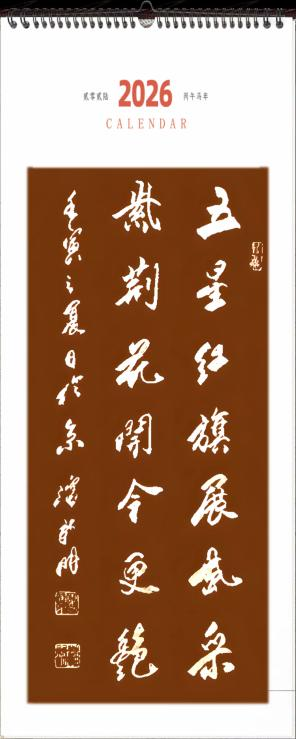 贰零贰陆 2026 丙午马年
CALENDAR
五星红旗展风采
紫荆花開今更艳
壬寅之夏日於京